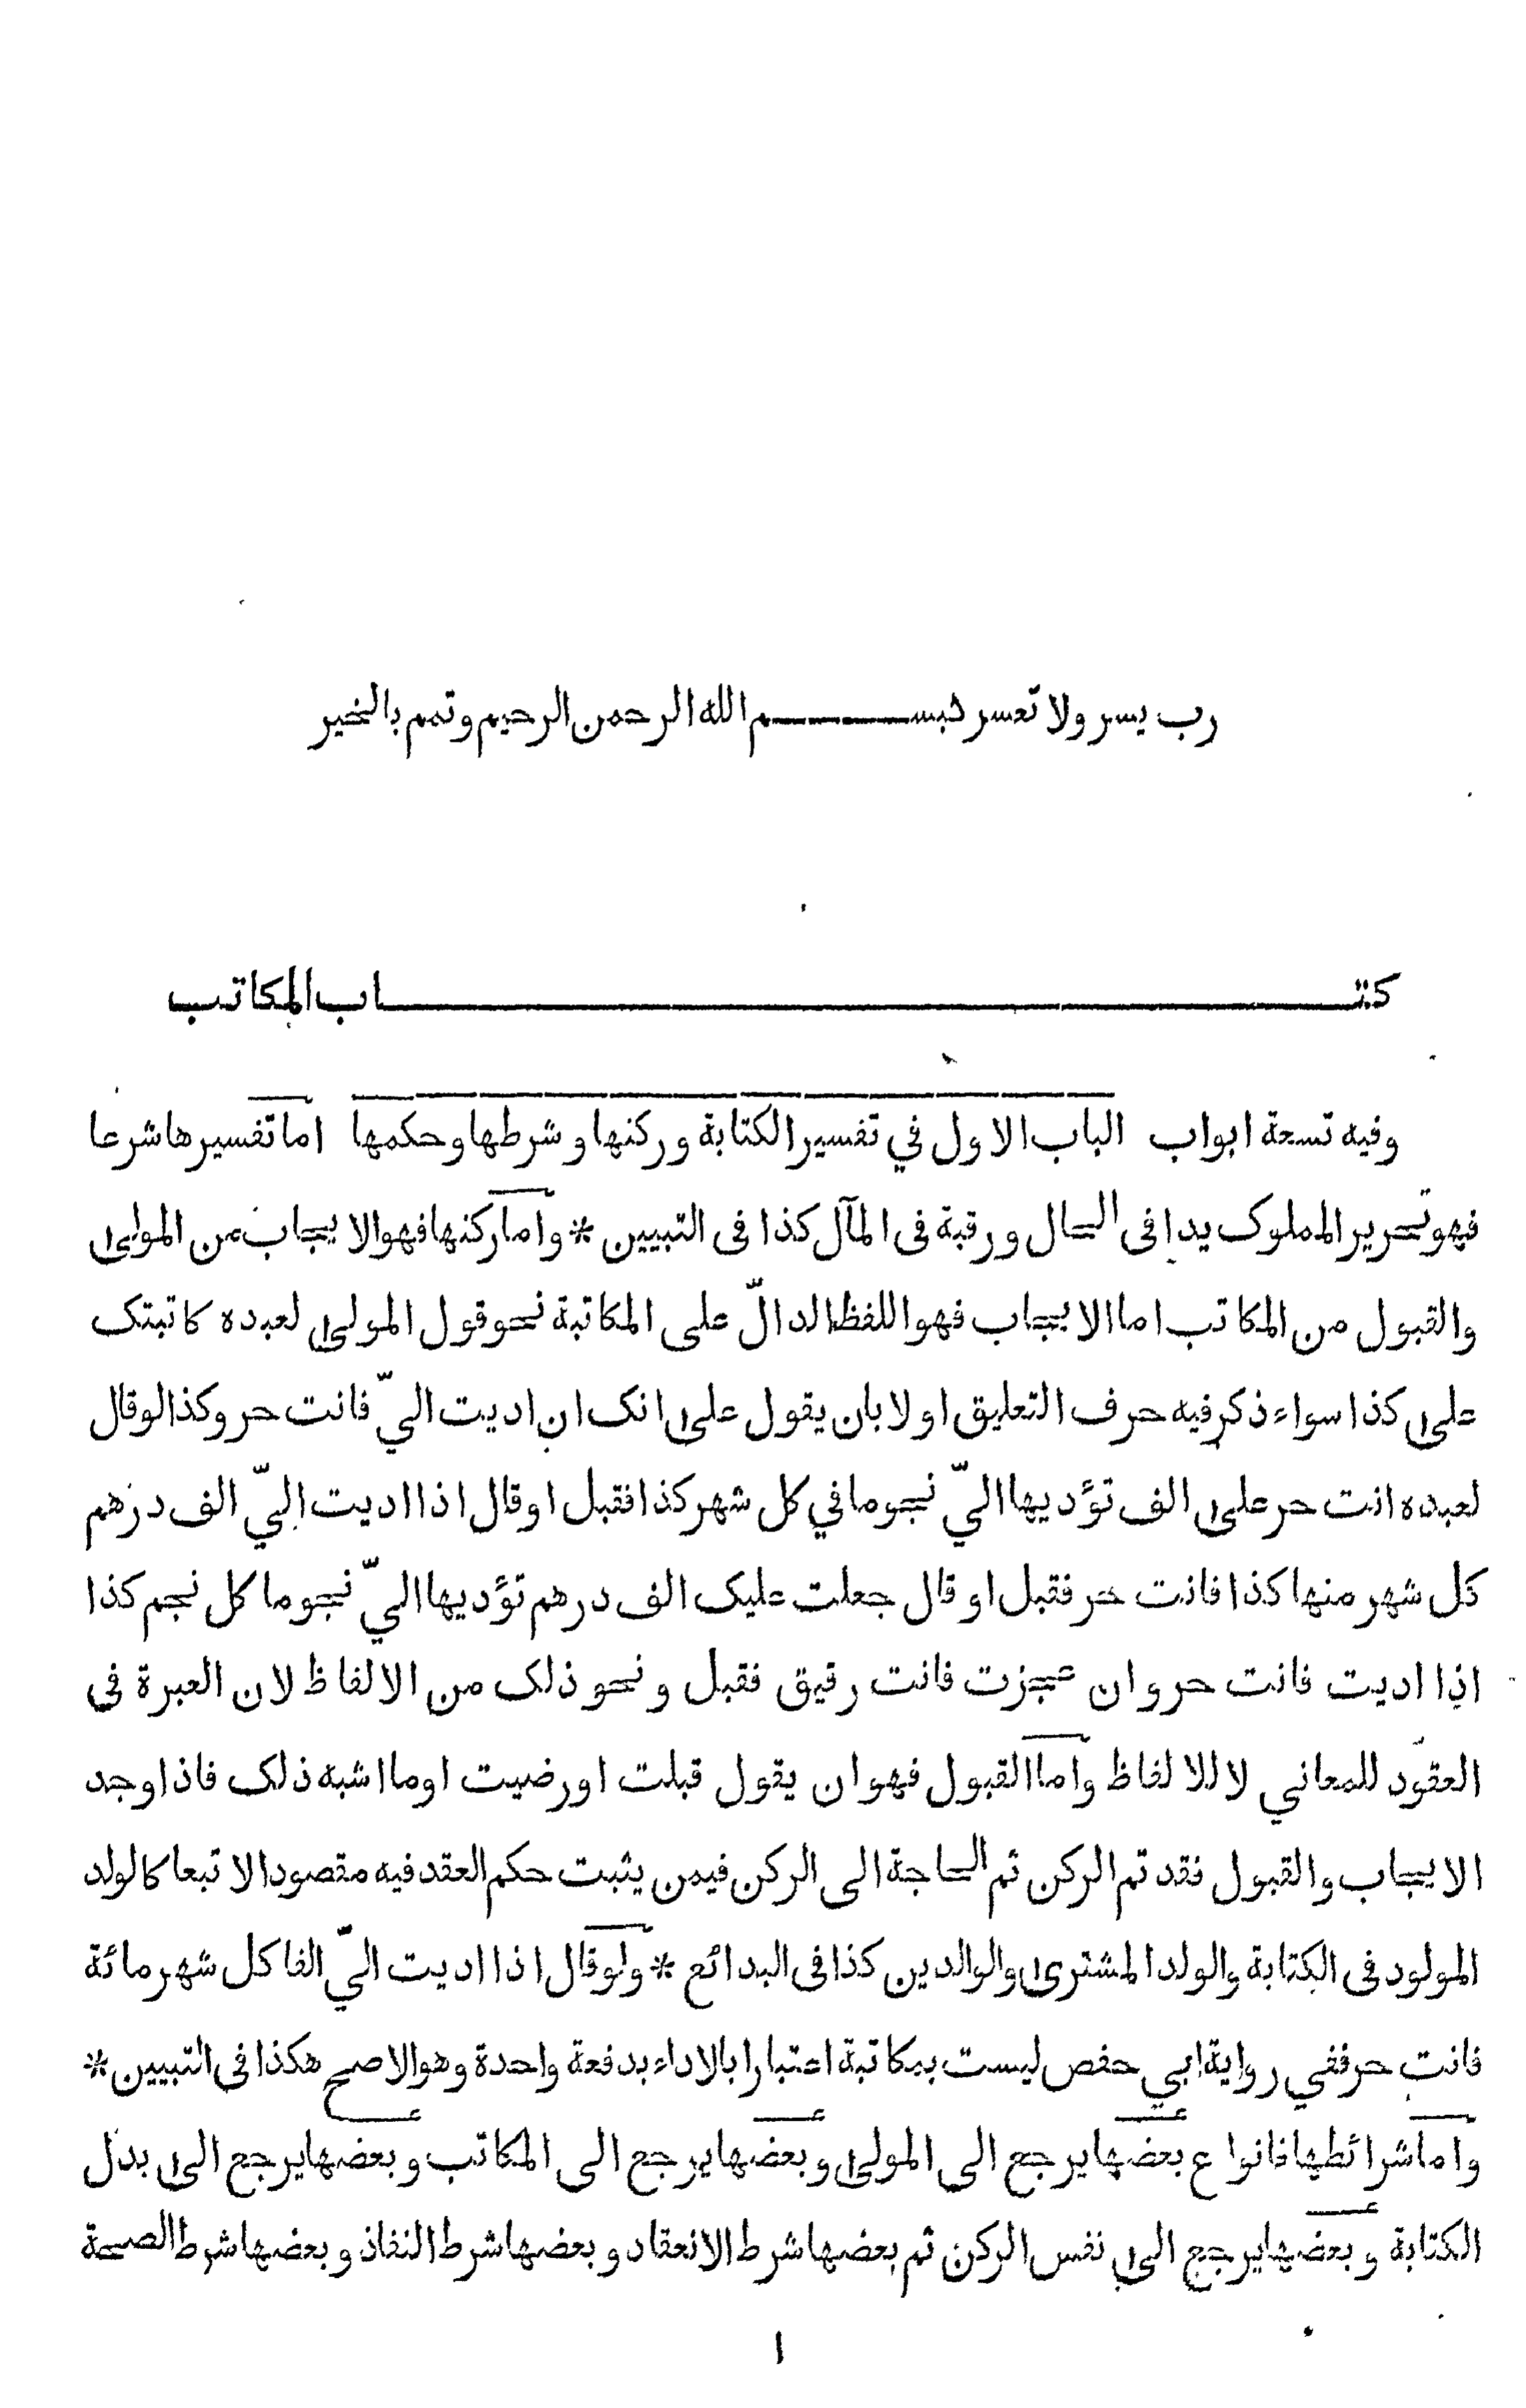 رب يسر ولا تعسر بسم الله الرحمن الرحيم وتمم بالخير
كتاب المكاتب
وفيه تسعة ابواب الباب الاول في تفسير الكتابة وركنها وشرطها وحكمها اما تفسيرها شرعا
فهو تحرير المملوك يدا فى الحال ورقبة فى المآل كذا فى التبيين * واما ركنها فهو الايجاب من المولى
والقبول من المكاتب اما الايجاب فهو اللفظ الدالّ على المكاتبة نحو قول المولى لعبده كاتبتك
على كذا سواء ذكر فيه حرف التعليق اولا بان يقول على انك ان اديت اليّ فانت حر وكذا لو قال
لعبده انت حر على الف تؤديها اليّ نجوما في كل شهر كذا فقبل او قال اذا اديت اليّ الف درهم
كل شهر منها كذا فانت حر فقبل او قال جعلت عليك الف درهم تؤديها اليّ نجوما كل نجم كذا
اذا اديت فانت حر وان عجزت فانت رقيق فقبل ونحو ذلك من الالفاظ لان العبرة فى
العقود للمعاني لا للالفاظ واما القبول فهو ان يقول قبلت او رضيت اوما اشبه ذلك فاذا وجد
الايجاب والقبول فقد تم الركن ثم الحاجة الى الركن فيمن يثبت حكم العقد فيه مقصودا لا تبعا كالولد
المولود فى الكتابة والولد المشترى والوالدين كذا فى البدائع * ولو قال اذا اديت اليّ الفا كل شهر مائة
فانت حر ففي رواية ابي حفص ليست بمكاتبة اعتبارا بالاداء بدفعة واحدة وهو الاصح هكذا فى التبيين *
واما شرائطها فانواع بعضها يرجع الى المولى وبعضها يرجع الى المكاتب وبعضها يرجع الى بدل
الكتابة وبعضها يرجع الى نفس الركن ثم بعضها شرط الانعقاد وبعضها شرط النفاذ وبعضها شرط الصحة
ا